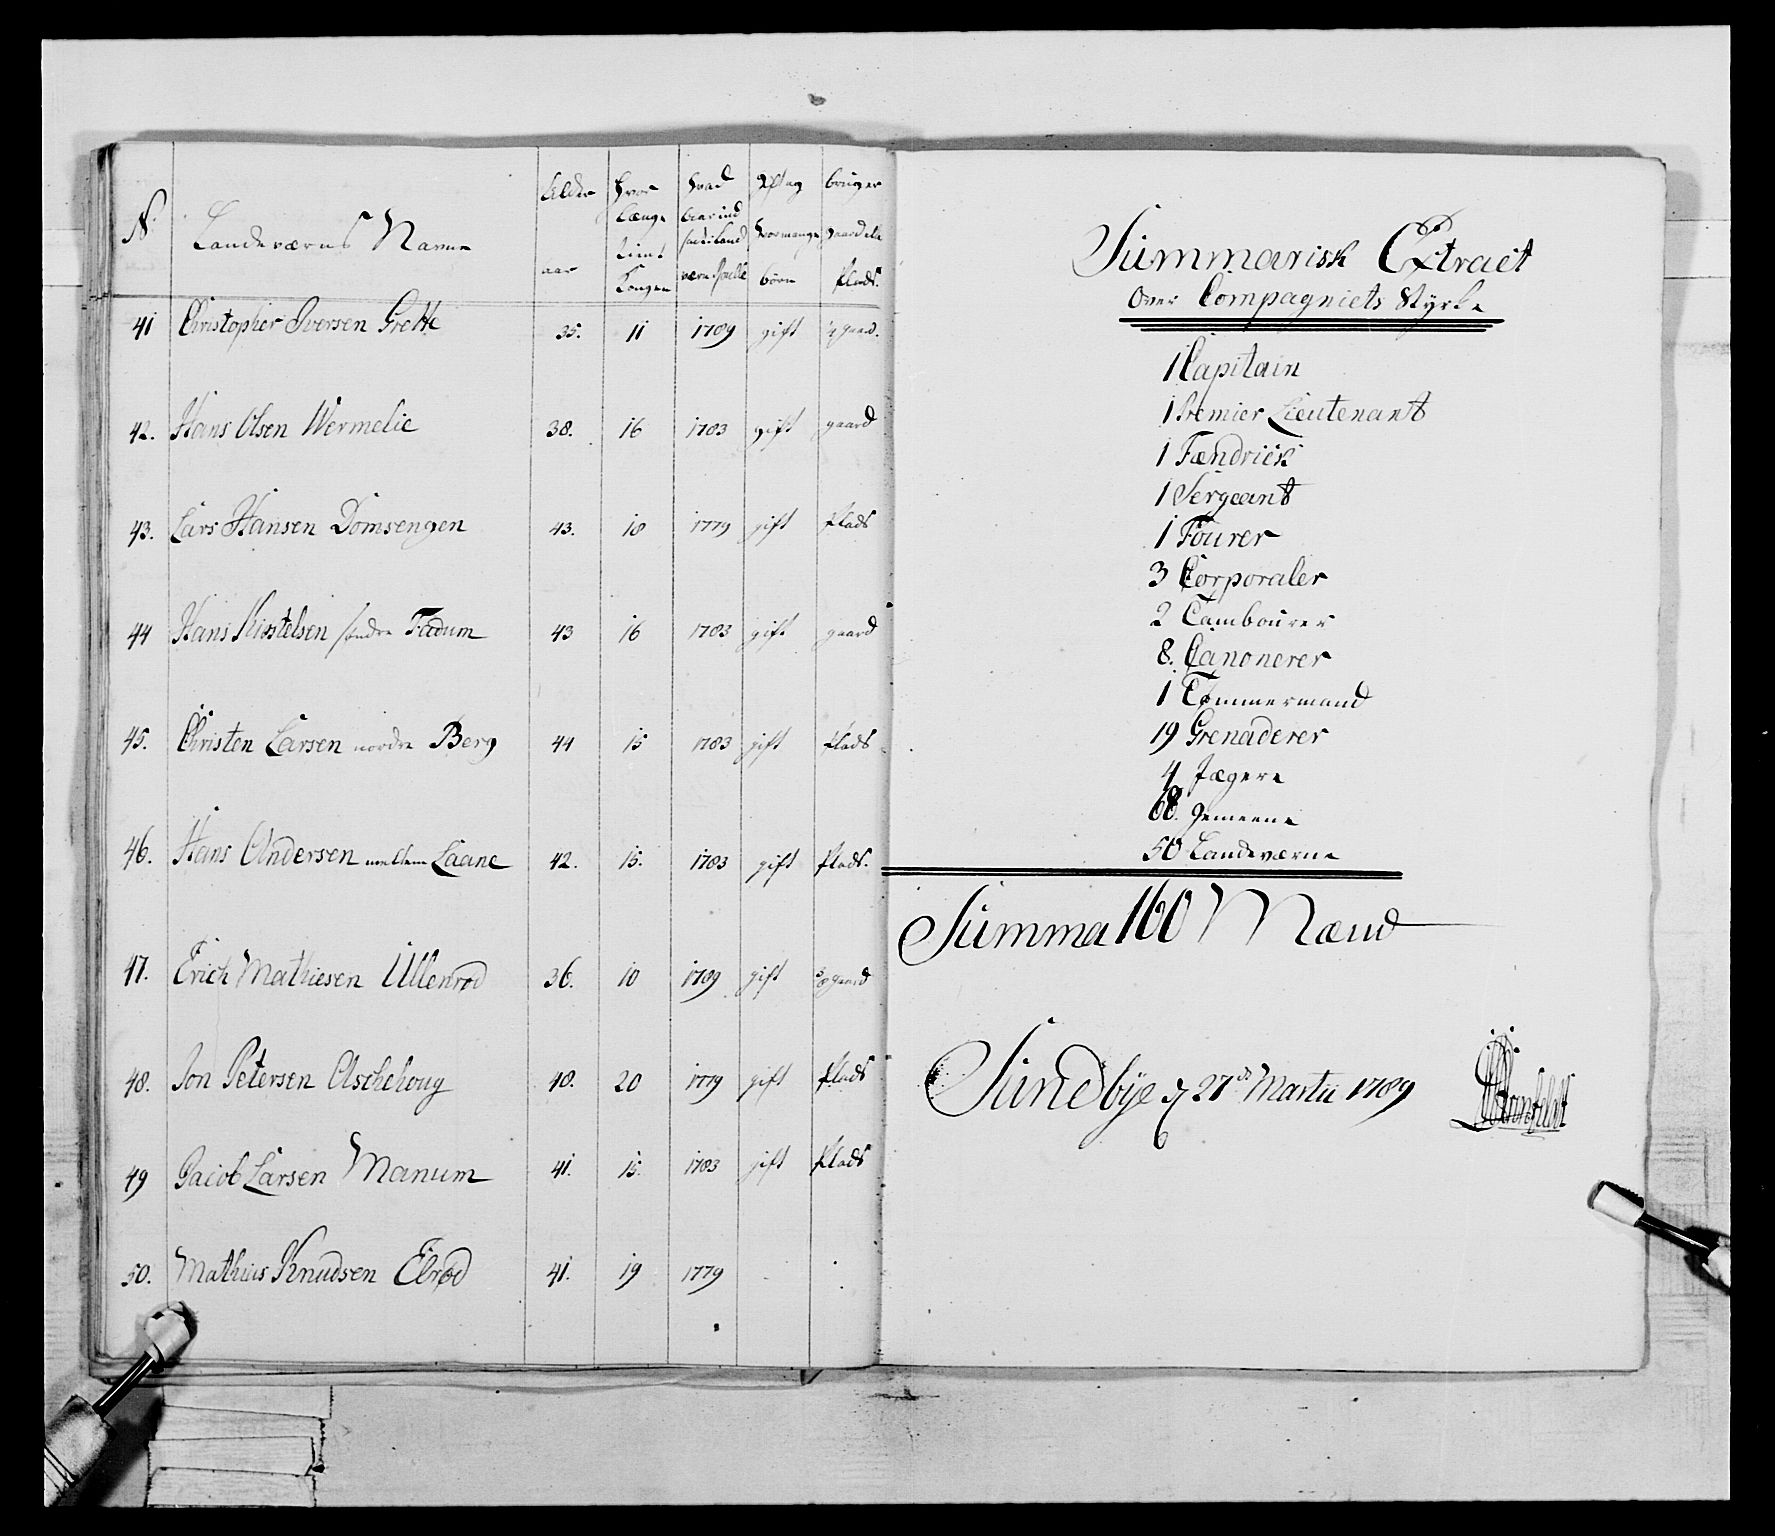 N. Landeværns Navne Alder aar hvor længe tient Kongen hvad Aar ind sadt i Land værns rulle Gift og hvormange børn bruger gaard ell Plads.
41 Christopher Iversen Grette 35. 11 1789 gift ½ gaard.
42. Hans Olsen Wermelie 38. 16 1783 gift gaard
43. Lars Hansen Domsengen 43. 18 1779 gift Plads
44 Hans Kirstelsen søndre Fadum 43 16 1783 gift gaard
45. Christen Larsen nordre Berg 44 15 1783 gift Plads
46. Hans Andersen mellem Laane 42. 15. 1783 gift Plads.
47. Erich Mathiesen Ullenrød 36. 10 1789 gift gaard
48. Jon Petersen Aschehoug 40. 20 1779 gift Plads
49 Jacob Larsen Manum 41. 15. 1783 gift Plads
50. Mathias Knudsen Elrød 41. 19 1779
Summarisk Extract
Over Compagniets Styrke
1 Capitain
1 Premier Lieutenant
1 Fændrick
1 Sergeant
1 Fourer
3 Corporaler
2 Tambourer
8. Canonerer
1 Tømmermand
19 Grenaderer
4 Jægere
68. Gemeene
50 Landeværne
Summa 160 Mænd
Sundbÿe d 27de Martii 1789